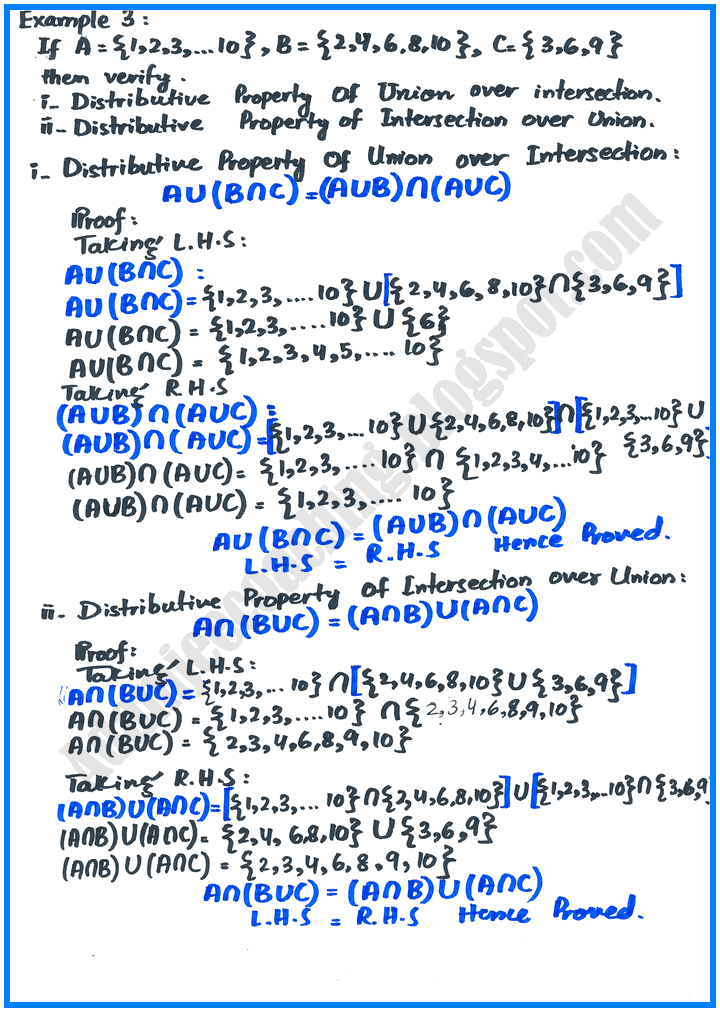 Example 3:
If A = {1,2,3,... 10}, B = {2,4,6,8,10}, C = {3,6,9}
then verify.
i- Distributive Property Of Union over intersection.
ii- Distributive Property of Intersection over Union.
i- Distributive Property Of Union over Intersection:
AU(B∩C) = (AUB)∩(AUC)
Proof:
Taking L.H.S:
AU(B∩C) :
AU(B∩C) = {1,2,3,.... 10} U [{2,4,6,8,10} ∩ {3,6,9}]
AU(B∩C) = {1,2,3,.... 10} U {6}
AU(B∩C) = {1,2,3,4,5,.... 10}
Taking R.H.S
(AUB)∩(AUC) :
(AUB)∩(AUC) = [{1,2,3,... 10} U {2,4,6,8,10}] ∩ [{1,2,3,... 10} U
{3,6,9}]
(AUB)∩(AUC) = {1,2,3,.... 10} ∩ {1,2,3,4,...10}
(AUB)∩(AUC) = {1,2,3,.... 10}
AU(B∩C) = (AUB)∩(AUC)
L.H.S = R.H.S Hence Proved.
ii- Distributive Property of Intersection over Union:
A∩(BUC) = (A∩B)U(A∩C)
Proof:
Taking L.H.S:
A∩(BUC) = {1,2,3,... 10} ∩ [{2,4,6,8,10} U {3,6,9}]
A∩(BUC) = {1,2,3,....10} ∩ {2,3,4,6,8,9,10}
A∩(BUC) = {2,3,4,6,8,9,10}
Taking R.H.S:
(A∩B)U(A∩C) = [{1,2,3,... 10} ∩ {2,4,6,8,10}] U [{1,2,3,...10} ∩ {3,6,9
(A∩B)U(A∩C) = {2,4,6,8,10} U {3,6,9}
(A∩B)U(A∩C) = {2,3,4,6,8,9,10}
A∩(BUC) = (A∩B)U(A∩C)
L.H.S = R.H.S Hence Proved.